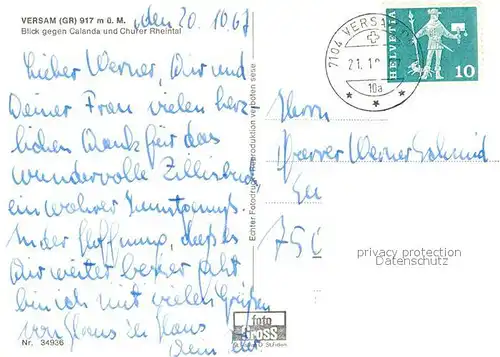 VERSAM (GR) 917 m ü. M.
Blick gegen Calanda und Churer Rheintal
den 20. 10. 67
Lieber Werner, Dir und
Deiner Frau vielen herz-
lichen Dank für das
wundervolle Zillisbuch,
ein wahrer Kunstgenuß.
In der Hoffnung, daß es
Dir weiter besser geht
bin ich mit vielen Grüßen
von Haus zu Haus
Dein
Nr. 34936
Echter Fotodruck Reproduktion verboten
foto
GROSS
7104 VERSAM
21.1
10a
HELVETIA
10
Herrn
Pfarrer Werner Schmid
750
privacy protection
Datenschutz